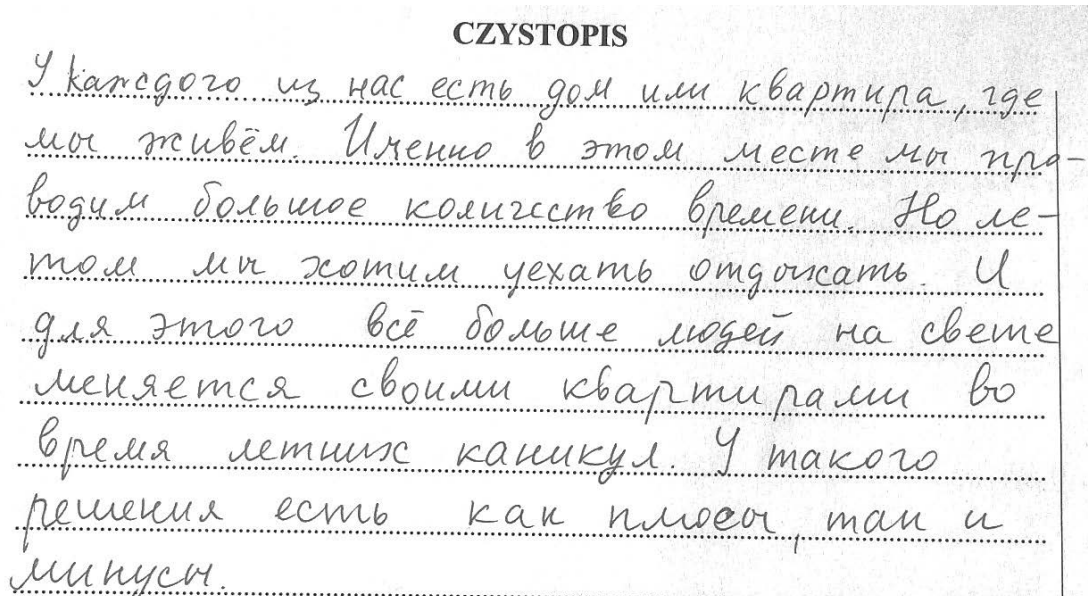 CZYSTOPIS
У каждого из нас есть дом или квартира, где
мы живём. Именно в этом месте мы про-
водим большое количество времени. Но ле-
том мы хотим уехать отдыхать. И
для этого всё больше людей на свете
меняется своими квартирами во
время летних каникул. У такого
решения есть как плюсы, так и
минусы.